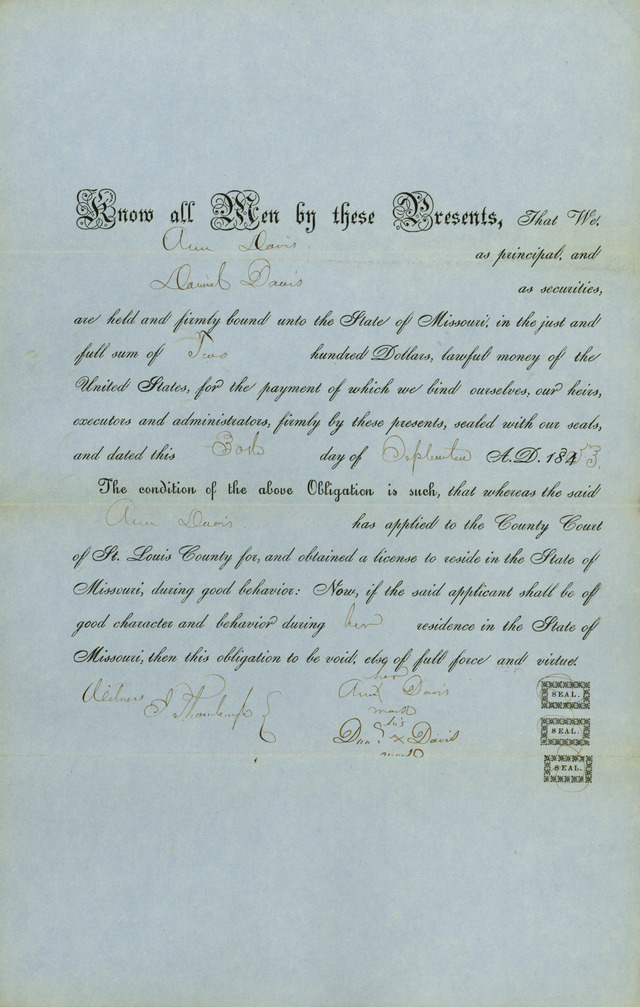 Know all Men by these Presents, That We,
Ann Davis as principal, and
Daniel Davis as securities,
are held and firmly bound unto the State of Missouri, in the just and
full sum of Two hundred Dollars, lawful money of the
United States, for the payment of which we bind ourselves, our heirs,
executors and administrators, firmly by these presents, sealed with our seals,
and dated this 30th day of September A.D. 1853.
The condition of the above Obligation is such, that whereas the said
Ann Davis has applied to the County Court
of St. Louis County for, and obtained a license to reside in the State of
Missouri, during good behavior: Now, if the said applicant shall be of
good character and behavior during her residence in the State of
Missouri, then this obligation to be void, else of full force and virtue.
her
Witness Ann x Davis SEAL.
mark
his
Danl x Davis SEAL.
mark
SEAL.